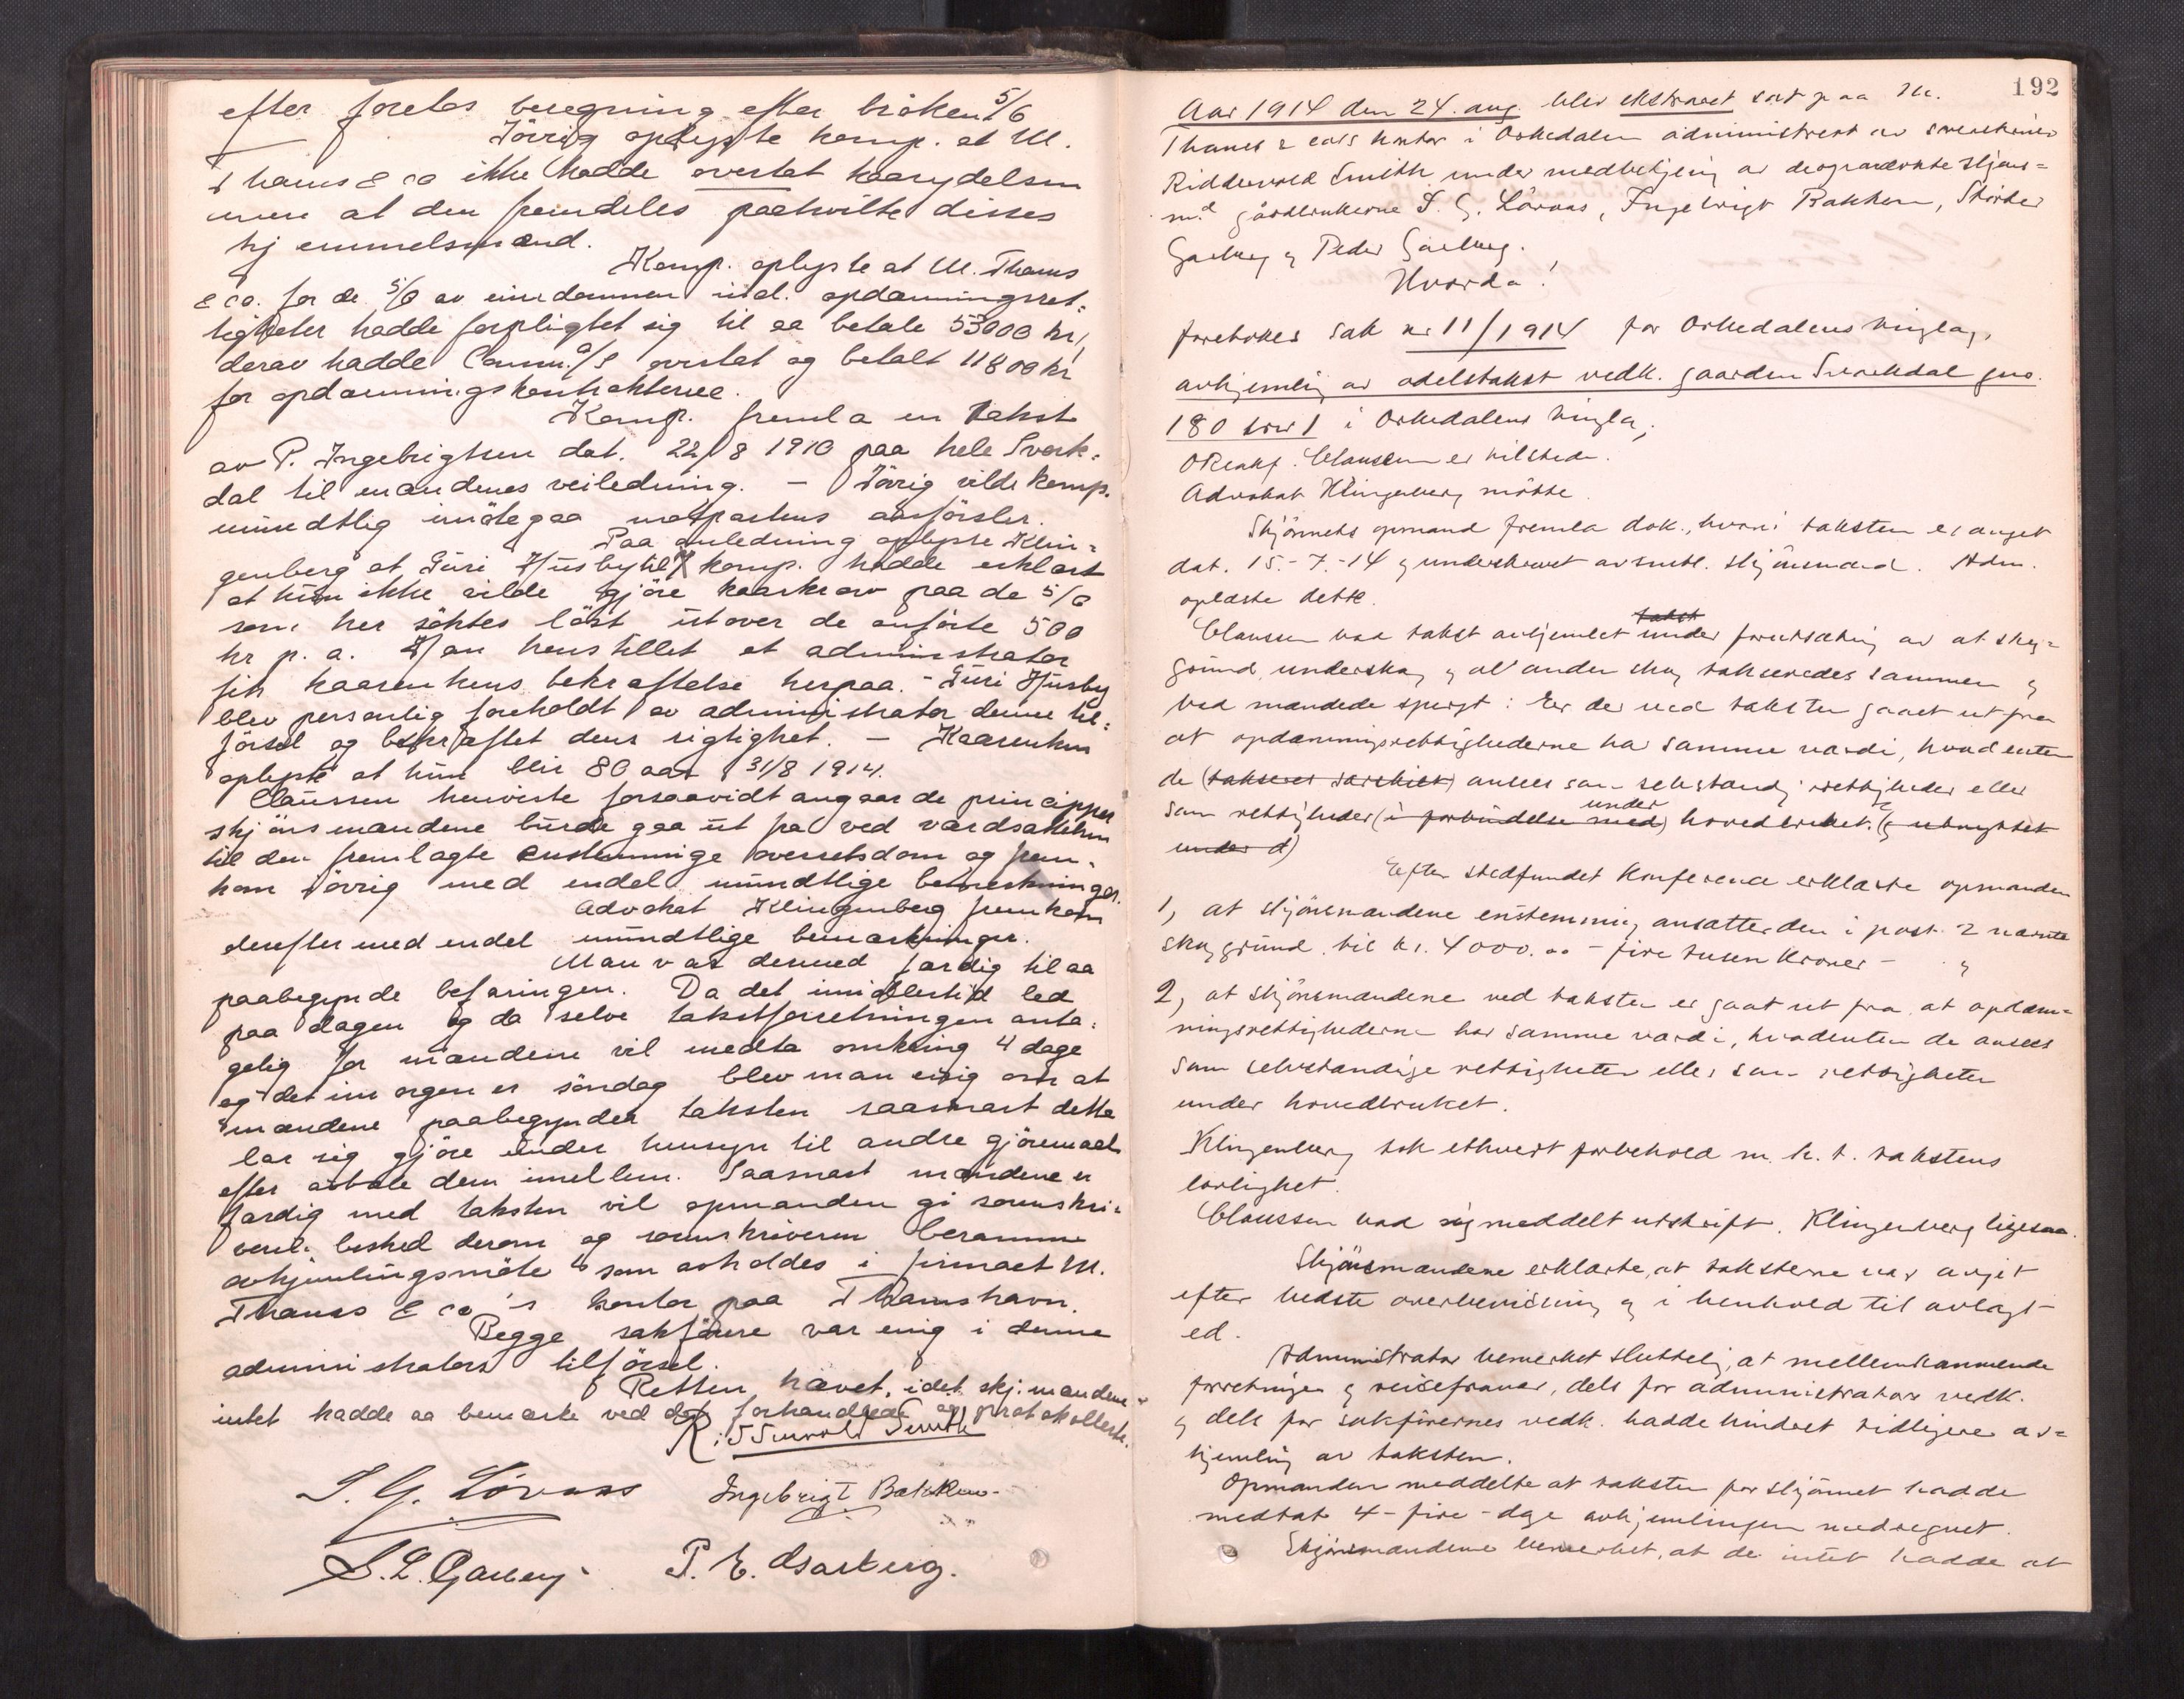 efter foretas beregning efter bröken 5/6
Iövrig oplyste komp. at M.
Thams & co ikke hadde overtat kaarydelsen
men at den fremdeles paahvilte disses
hjemmelsmænd.
Komp. oplyste at M. Thams
& co. for de 5/6 av eiendommen incl. opdæmningsret-
tigheter hadde forpligtet sig til aa betale 53000 kr,
derav hadde Comm. a/s overtat og betalt 11800 kr
for opdæmningskontrakterne.
Komp. fremla en takst
av P. Ingebrigtsen dat. 22/8 1910 paa hele Svork-
dal til mændenes veiledning. – Iövrig vilde komp.
mundtlig imötegaa motpartens anförsler.
Paa anledning oplyste Klin-
genberg at Guri Husby til komp. hadde erklært
at hun ikke vilde gjöre kaarkrav paa de 5/6
som her söktes löst utover de anförte 500
kr p. a. Han henstillet at administrator
fik kaarenkens bekræftelse herpaa. – Guri Husby
blev personlig foreholdt av administrator denne til-
försel og bekræftet dens rigtighet. – Kaarenken
oplyste at hun blir 80 aar 31/8 1914.
Claussen henviste forsaavidt angaar de principper
skjönsmændene burde gaa ut fra ved værdsættelsen
til den fremlagte enstemmige overretsdom og frem-
kom iövrig med endel mundtlige bemerkninger.
Advokat Klingenberg fremkom
derefter med endel mundtlige bemærkninger.
Man var dermed færdig til aa
paabegynde befaringen. Da det imidlertid led
paa dagen og da selve takstforretningen anta-
gelig for mændene vil medta omkring 4 dage
og det imorgen er söndag blev man enig om at
mændene paabegynder taksten saasnart dette
lar sig gjöre under hensyn til andre gjöremaal
efter avtale dem imellem. Saasnart mændene er
færdig med taksten vil opmanden gi sorenskri-
veren besked derom og sorenskriveren beramme
avhjemlingsmöte som avholdes i firmaet M.
Thams & co's kontor paa Thamshavn.
Begge sakförere var enig i denne
administrators tilförsel.
Retten hævet, idet skj.mændene
intet hadde aa bemærke ved det forhandlede og protokollerte.
Ridderwold Smith
I. G. Lövaas Ingebrigt Bakken
S. L. Garberg P. E. Garberg.
192
Aar 1914 den 24. aug. blev ekstraret sat paa M.
Thams & co's kontor i Orkedalen administrert av sorenskriver
Ridderwold Smith under medbetjening av de opnævnte skjöns-
md gårdbrukerne I. G. Lövaas, Ingebrigt Bakken, Störker
Garberg og Peder Garberg.
Hvorda!
foretokes sak nr 11/1914 for Orkedalens tinglag,
avhjemling av odelstakst vedk. gaarden Svorkdal gno.
180 brnr 1 i Orkedalens tinglag.
Claussen er tilstede.
Advokat Klingenberg mötte.
Skjönnets opmand fremla dok., hvori taksten er avgit
dat. 15.-7.-14 og underskrevet av samtl. skjönsmænd. Adm.
oplæste dette.
takst
Claussen bad takst avhjemlet under forutsætning av at skog-
grund, underskog og al anden skog takseredes sammen og
bad mændede spurgt: Er der ved taksten gaaet ut fra
at opdæmningsrettighederne har samme værdi, hvad enten
de (takseres særskilt) ansees som selvstændig rettigheder eller
under
som rettigheder (i forbindelse med) hovedbruket. (og utnyttet
under d)
Efter stedfundet konference erklærte opmanden
1, at skjönsmændene enstemmig ansætter den i post 2 nævnte
skoggrund til kr. 4000.00 – fire tusen kroner – og
2, at skjönsmændene ved taksten er gaat ut fra at opdæm-
ningsrettighederne har samme værdi, hvadenten de ansees
som selvstændige rettigheter eller som rettigheter
under hovedbruket.
Klingenberg tok ethvert forbehold m. h. t. takstens
lovlighet.
Claussen bad sig meddelt utskrift. Klingenberg ligesaa.
Skjönsmændene erklærte, at taksterne var avgit
efter bedste overbevisning og i henhold til avlagt
ed.
Administrator bemerket sluttelig, at mellemkommende
forretninger og reisefravær, dels for administrators vedk.
og dels for sakförernes vedk. hadde hindret tidligere av-
hjemling av taksten.
Opmanden meddelte at taksten for skjönnet hadde
medtat 4 – fire – dage avhjemlingen medregnet.
Skjönsmændene bemerket, at de intet hadde at